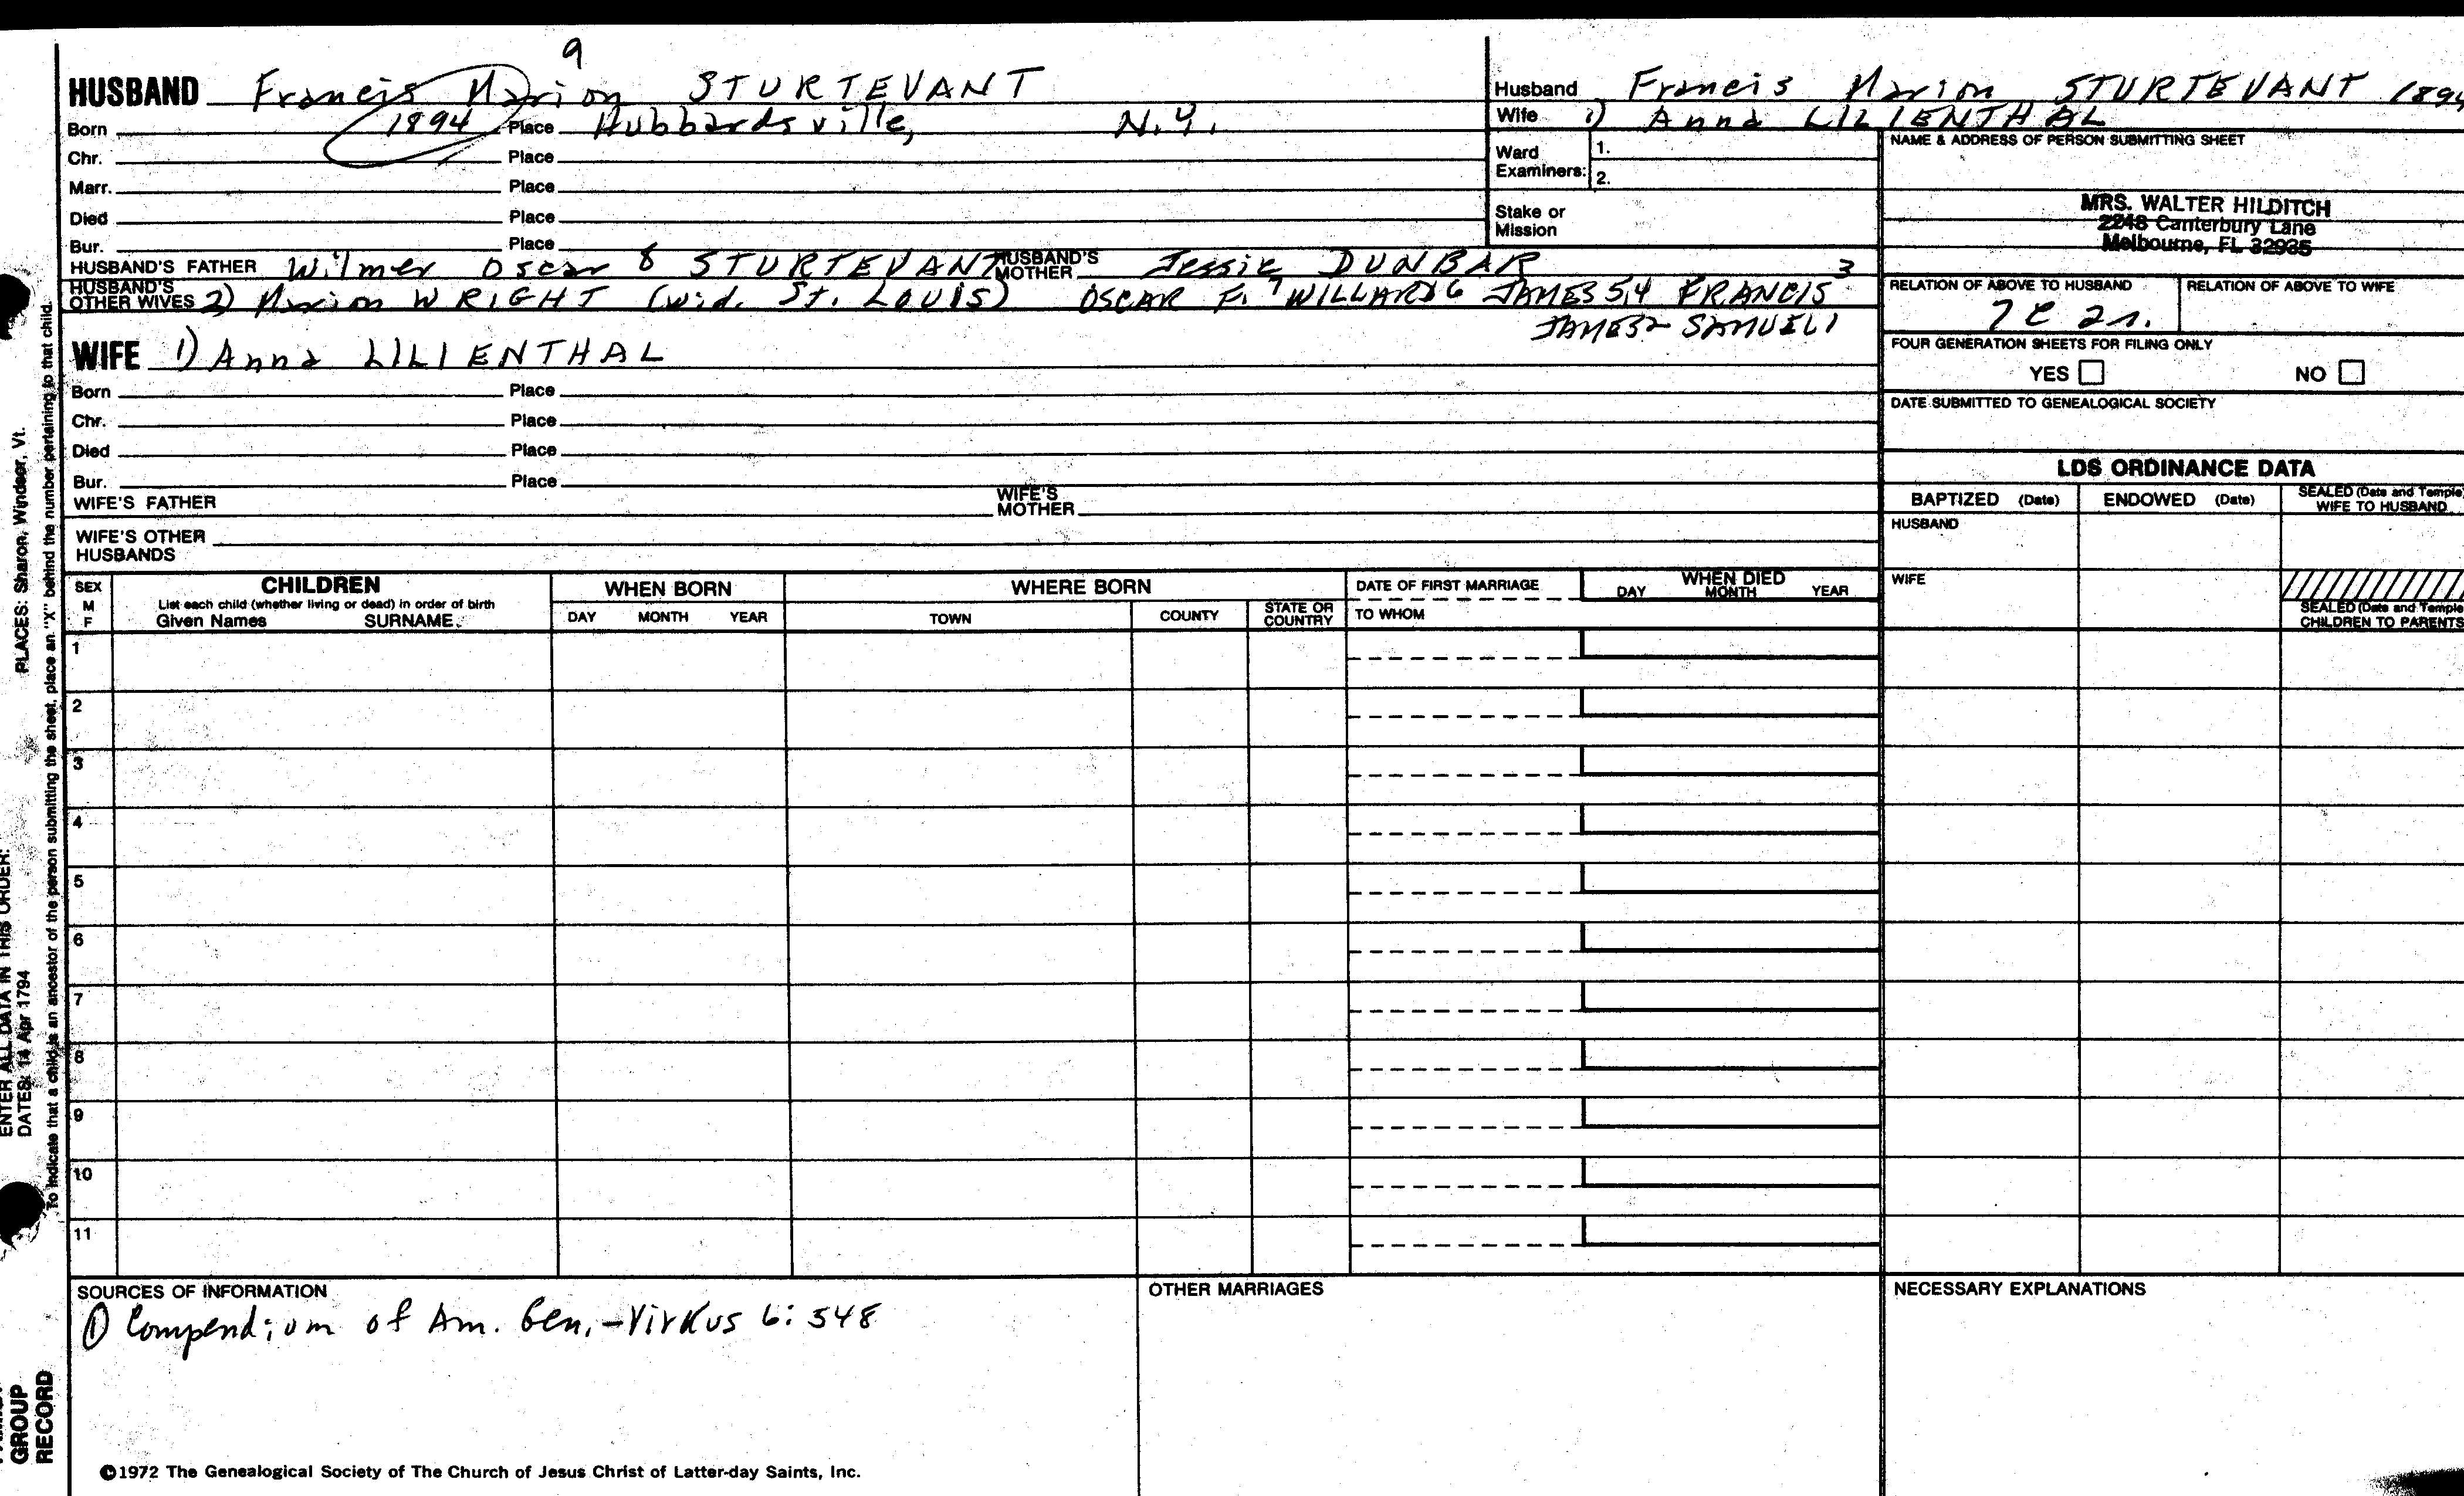 9
HUSBAND Francis Marion STURTEVANT
Born 1894 Place Hubbardsville, N.Y.
Chr. Place
Marr. Place
Died Place
Bur. Place
HUSBAND'S FATHER Wilmer Oscar 8 STURTEVANT HUSBAND'S MOTHER Jessie DUNBAR
HUSBAND'S OTHER WIVES 2) Marion WRIGHT (wid. St. Louis) OSCAR F. 7 WILLARD 6 JAMES 5,4 FRANCIS 3
JAMES 2 SAMUEL 1
WIFE 1) Anna LILIENTHAL
Born Place
Chr. Place
Died Place
Bur. Place
WIFE'S FATHER WIFE'S MOTHER
WIFE'S OTHER HUSBANDS
Husband Francis Marion STURTEVANT 1894
Wife 1) Anna LILIENTHAL
Ward Examiners: 1.
2.
Stake or Mission
NAME & ADDRESS OF PERSON SUBMITTING SHEET
MRS. WALTER HILDITCH
2248 Canterbury Lane
Melbourne, FL 32935
RELATION OF ABOVE TO HUSBAND RELATION OF ABOVE TO WIFE
7C 2r.
FOUR GENERATION SHEETS FOR FILING ONLY
YES NO
DATE SUBMITTED TO GENEALOGICAL SOCIETY
LDS ORDINANCE DATA
BAPTIZED (Date) ENDOWED (Date) SEALED (Date and Temple) WIFE TO HUSBAND
HUSBAND
WIFE
SEALED (Date and Temple) CHILDREN TO PARENTS
SEX M F
CHILDREN
List each child (whether living or dead) in order of birth
Given Names SURNAME
WHEN BORN
DAY MONTH YEAR
WHERE BORN
TOWN COUNTY STATE OR COUNTRY
DATE OF FIRST MARRIAGE
TO WHOM
WHEN DIED
DAY MONTH YEAR
1
2
3
4
5
6
7
8
9
10
11
SOURCES OF INFORMATION
① Compendium of Am. Gen. - Virkus 6: 548
OTHER MARRIAGES
NECESSARY EXPLANATIONS
©1972 The Genealogical Society of The Church of Jesus Christ of Latter-day Saints, Inc.
PLACES: Sharon, Windsor, Vt.
ENTER ALL DATA IN THIS ORDER:
DATES: 14 Apr 1794
To indicate that a child is an ancestor of the person submitting the sheet, place an "X" behind the number pertaining to that child.
GROUP
RECORD